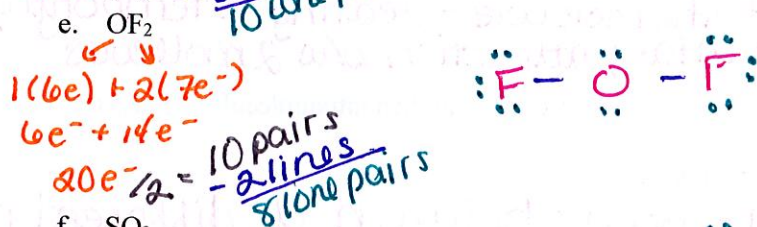 10
e. OF₂
1(6e) + 2(7e⁻)
6e⁻ + 14e⁻
20e⁻/2 = 10 pairs
- 2 lines
8 lone pairs
:F - O - F:
f. SO₂